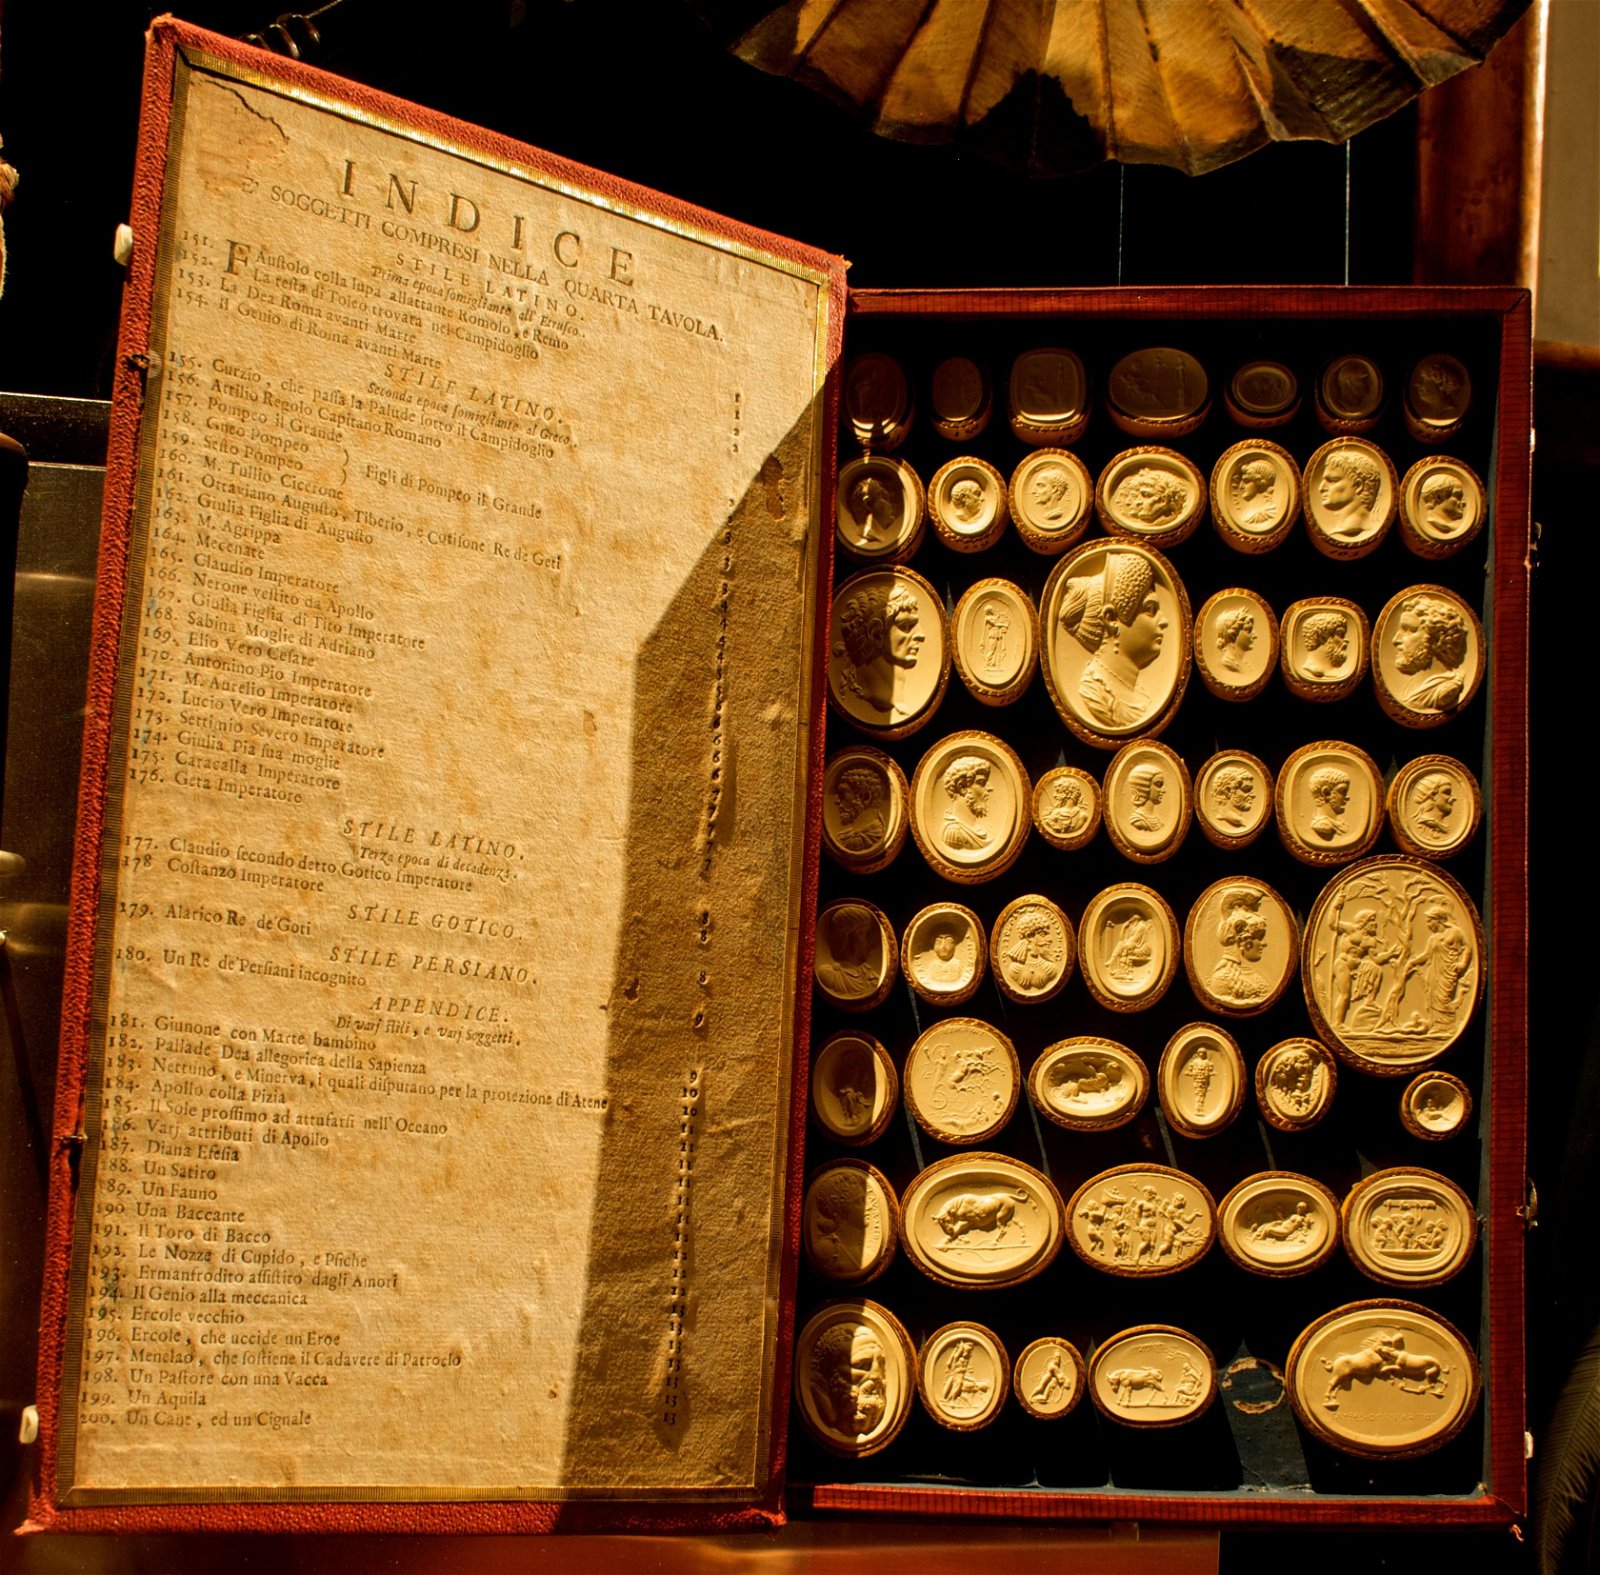 INDICE
E' SOGGETTI COMPRESI NELLA QUARTA TAVOLA.
STILE LATINO.
Prima epoca somigliante all' Etrusco.
151. FAustolo colla lupa allattante Romolo, e Remo
152. La testa di Toleo trovata nel Campidoglio
153. La Dea Roma avanti Marte
154. Il Genio di Roma avanti Marte
STILE LATINO.
Seconda epoca somigliante al Greco.
155. Curzio, che passa la Palude sotto il Campidoglio
156. Attilio Regolo Capitano Romano
157. Pompeo il Grande
158. Gneo Pompeo
159. Sesto Pompeo } Figli di Pompeo il Grande
160. M. Tullio Cicerone
161. Ottaviano Augusto, Tiberio, e Cotisone Re de Geti
162. Giulia Figlia di Augusto
163. M. Agrippa
164. Mecenate
165. Claudio Imperatore
166. Nerone vestito da Apollo
167. Giulia Figlia di Tito Imperatore
168. Sabina Moglie di Adriano
169. Elio Vero Cesare
170. Antonino Pio Imperatore
171. M. Aurelio Imperatore
172. Lucio Vero Imperatore
173. Settimio Severo Imperatore
174. Giulia Pia sua moglie
175. Caracalla Imperatore
176. Geta Imperatore
STILE LATINO.
Terza epoca di decadenza.
177. Claudio secondo detto Gotico Imperatore
178 Costanzo Imperatore
STILE GOTICO.
179. Alarico Re de' Goti
STILE PERSIANO.
180. Un Re de' Persiani incognito
APPENDICE.
Di varj stili, e varj Soggetti.
181. Giunone con Marte bambino 9
182. Pallade Dea allegorica della Sapienza 10
183. Nettuno, e Minerva, i quali disputano per la protezione di Atene 10
184. Apollo colla Pizia 11
185. Il Sole prossimo ad attufarsi nell' Oceano 11
186. Varj attributi di Apollo 11
187. Diana Efesia 11
188. Un Satiro
189. Un Fauno
190 Una Baccante
191. Il Toro di Bacco
192. Le Nozze di Cupido, e Psiche
193. Ermanfrodito assistito dagli Amori
194. Il Genio alla meccanica
195. Ercole vecchio
196. Ercole, che uccide un Eroe
197. Menelao, che sostiene il Cadavere di Patroclo 13
198. Un Pastore con una Vacca 13
199. Un Aquila 13
200. Un Cane, ed un Cignale 13